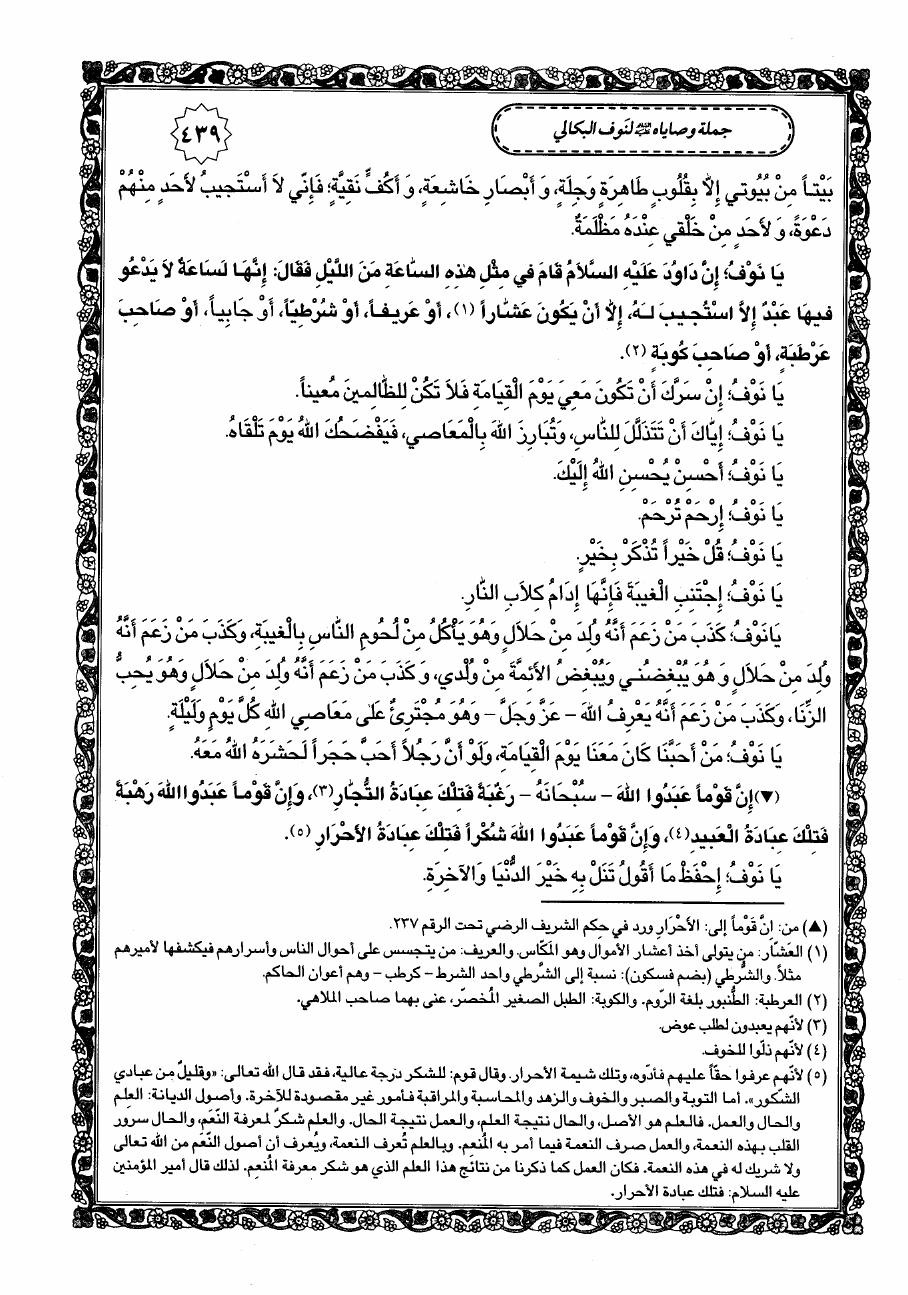 جملة وصاياه عليه السلام لنوف البكالي
٤٣٩
بَيْتاً مِنْ بُيُوتي إِلاَّ بِقُلُوبٍ طَاهِرَةٍ وَجِلَةٍ، وَ أَبْصَارٍ خَاشِعَةٍ، وَ أَكُفٍّ نَقِيَّةٍ؛ فَإِنّي لاَ أَسْتَجيبُ لأَحَدٍ مِنْهُمْ
دَعْوَةً، وَ لأَحَدٍ مِنْ خَلْقي عِنْدَهُ مَظْلَمَةٌ.
يَا نَوْفُ؛ إِنَّ دَاوُدَ عَلَيْهِ السَّلاَمُ قَامَ في مِثْلِ هٰذِهِ السَّاعَةِ مَنَ اللَّيْلِ فَقَالَ: إِنَّهَا لَسَاعَةٌ لاَ يَدْعُو
فيهَا عَبْدٌ إِلاَّ اسْتُجيبَ لَهُ، إِلاَّ أَنْ يَكُونَ عَشَّاراً (١)، أَوْ عَريفاً، أَوْ شُرْطِيّاً، أَوْ جَابِياً، أَوْ صَاحِبَ
عَرْطَبَةٍ، أَوْ صَاحِبَ كُوبَةٍ (٢).
يَا نَوْفُ؛ إِنْ سَرَّكَ أَنْ تَكُونَ مَعِيَ يَوْمَ الْقِيَامَةِ فَلاَ تَكُنْ لِلظَّالِمينَ مُعيناً.
يَا نَوْفُ؛ إِيَّاكَ أَنْ تَتَذَلَّلَ لِلنَّاسِ، وَتُبَارِزَ اللهَ بِالْمَعَاصي، فَيَفْضَحُكَ اللهُ يَوْمَ تَلْقَاهُ.
يَا نَوْفُ؛ أَحْسِنْ يُحْسِنِ اللهُ إِلَيْكَ.
يَا نَوْفُ؛ إِرْحَمْ تُرْحَمْ.
يَا نَوْفُ؛ قُلْ خَيْراً تُذْكَرْ بِخَيْرٍ.
يَا نَوْفُ؛ إِجْتَنِبِ الْغيبَةَ فَإِنَّهَا إِدَامُ كِلاَبِ النَّارِ.
يَانَوْفُ؛ كَذَبَ مَنْ زَعَمَ أَنَّهُ وُلِدَ مِنْ حَلاَلٍ وَهُوَ يَأْكُلُ مِنْ لُحُومِ النَّاسِ بِالْغيبَةِ، وَكَذَبَ مَنْ زَعَمَ أَنَّهُ
وُلِدَ مِنْ حَلاَلٍ وَ هُوَ يُبْغِضُني وَيُبْغِضُ الأَئِمَّةَ مِنْ وُلْدي، وَ كَذَبَ مَنْ زَعَمَ أَنَّهُ وُلِدَ مِنْ حَلاَلٍ وَهُوَ يُحِبُّ
الزِّنَا، وَكَذَبَ مَنْ زَعَمَ أَنَّهُ يَعْرِفُ اللهَ - عَزَّ وَجَلَّ - وَهُوَ مُجْتَرِئٌ عَلىٰ مَعَاصِي اللهِ كُلَّ يَوْمٍ وَلَيْلَةٍ.
يَا نَوْفُ؛ مَنْ أَحَبَّنَا كَانَ مَعَنَا يَوْمَ الْقِيَامَةِ، وَلَوْ أَنَّ رَجُلاً أَحَبَّ حَجَراً لَحَشَرَهُ اللهُ مَعَهُ.
(▼) إِنَّ قَوْماً عَبَدُوا اللهَ - سُبْحَانَهُ - رَغْبَةً فَتِلْكَ عِبَادَةُ التُّجَّارِ (٣)، وَإِنَّ قَوْماً عَبَدُوا اللهَ رَهْبَةً
فَتِلْكَ عِبَادَةُ الْعَبيدِ (٤)، وَإِنَّ قَوْماً عَبَدُوا اللهَ شُكْراً فَتِلْكَ عِبَادَةُ الأَحْرَارِ (٥).
يَا نَوْفُ؛ إِحْفَظْ مَا أَقُولُ تَنَلْ بِهِ خَيْرَ الدُّنْيَا وَالآخِرَةِ.
(▲) من: إِنَّ قَوْماً إلى: الأَحْرَارِ ورد في حكم الشريف الرضي تحت الرقم ٢٣٧.
(١) العَشّار: من يتولى أخذ أعشار الأموال وهو المكّاس. والعريف: من يتجسس على أحوال الناس وأسرارهم فيكشفها لأميرهم
مثلاً. والشُّرطي (بضم فسكون): نسبة إلى الشُّرطي واحد الشرط - كرطب - وهم أعوان الحاكم.
(٢) العرطبة: الطُّنبور بلغة الرّوم. والكوبة: الطبل الصغير المُخصّر، عنى بهما صاحب الملاهي.
(٣) لأنّهم يعبدون لطلب عوض.
(٤) لأنّهم ذلّوا للخوف.
(٥) لأنّهم عرفوا حقّاً عليهم فأدّوه، وتلك شيمة الأحرار. وقال قوم: للشكر درجة عالية، فقد قال الله تعالى: «وقليلٌ من عبادي
الشكور». أما التوبة والصبر والخوف والزهد والمحاسبة والمراقبة فأمور غير مقصودة للآخرة. وأصول الديانة: العِلم
والحال والعمل. فالعلم هو الأصل، والحال نتيجة العلم، والعمل نتيجة الحال. والعلم شكرٌ لمعرفة النِّعَم، والحال سرور
القلب بهذه النعمة، والعمل صرف النعمة فيما أمر به المُنعِم. وبالعلم تُعرف النعمة، ويُعرف أن أصول النِّعَم من الله تعالى
ولا شريك له في هذه النعمة. فكان العمل كما ذكرنا من نتائج هذا العلم الذي هو شكر معرفة المُنعِم. لذلك قال أمير المؤمنين
عليه السلام: فتلك عبادة الأحرار.